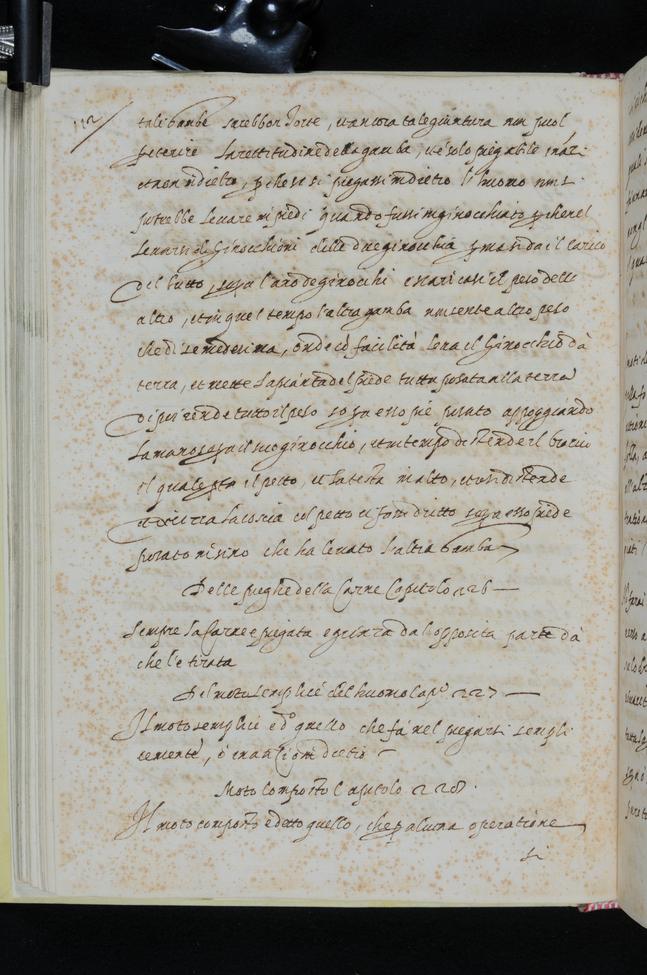 112
tali gambe sarebbon torte, et ancora tale giuntura non puol
preterire la rettitudine della gamba, et è solo piegabile inãzi
et non indietro, p che se si piegassi indietro l'huomo non si
potrebbe levare in piedi quando fussi inginocchiato p che nel
levarsi di Ginocchioni delle due ginocchia p manda il carico
del busto sopra l'uno de ginocchi e scarica il peso dell
altro, et in quel tempo l'altra gamba non sente altro peso
che di se medesima, onde cõ facilità leva il Ginocchio dà
terra, et mette la pianta del piede tutta posata alla terra
di poi rende tutto il peso sopra esso piè posato appoggiando
la mano sopra il suo ginocchio, et in tempo distende il braccio
il quale porta il petto, et la testa in alto, et così distende
et drizza la coscia col petto et fassi dritto sopra esso piede
posato insino che ha levato l'altra gamba
Delle pieghe della Carne Capitolo 226
sempre la Carne piegata è grinza da l'opposita parte dà
che l'è tirata
Del moto semplice del huomo Capo 227
Il moto semplice è dº quello che fà nel piegarsi sempli
cemente, ò inanzi ò indietro
Moto composto Capitolo 228.
Il moto composto è detto quello, che p alcuna operatione
si